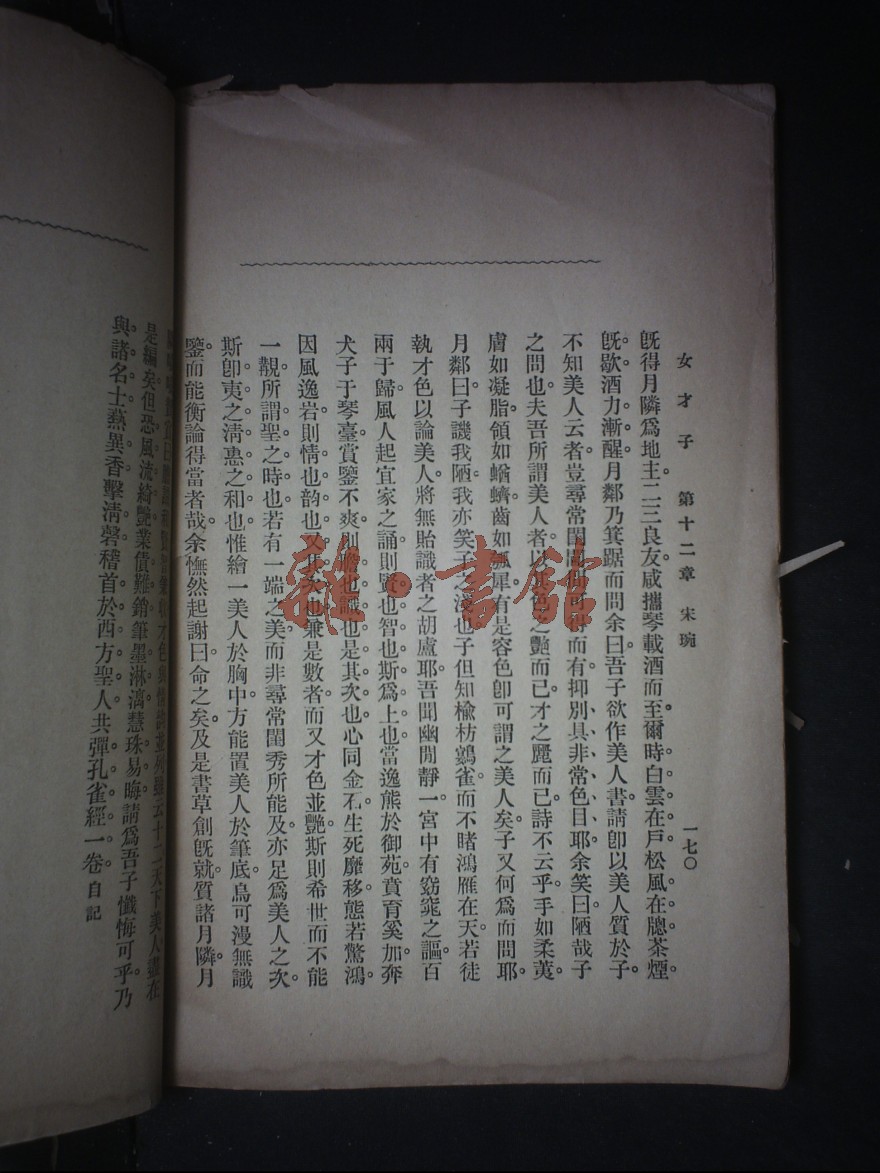 女才子　第十二章　宋琬　一七〇
既得月隣爲地主二三良友咸攜琴載酒而至爾時白雲在戶松風在牕茶煙
既歇酒力漸醒月鄰乃箕踞而問余曰吾子欲作美人書請卽以美人質於子
不知美人云者豈尋常閨閣所可得而有抑別具非常色目耶余笑曰陋哉子
之問也夫吾所謂美人者以其色之艷而已才之麗而已詩不云乎手如柔荑
膚如凝脂領如蝤蠐齒如瓠犀有是容色卽可謂之美人矣子又何爲而問耶
月鄰曰子譏我陋我亦笑子之淺也子但知楡枋鷃雀而不睹鴻雁在天若徒
執才色以論美人將無貽識者之胡盧耶吾聞幽閒靜一宮中有窈窕之謳百
兩于歸風人起宜家之誦則賢也智也斯爲上也當逸熊於御苑賁育奚加奔
犬子于琴臺賞鑒不爽則膽也識也是其次也心同金石生死靡移態若驚鴻
因風逸岩則情也韵也又其次也兼是數者而又才色並艷斯則希世而不能
一覯所謂聖之時也若有一端之美而非尋常閨秀所能及亦足爲美人之次
斯卽夷之淸惠之和也惟繪一美人於胸中方能置美人於筆底烏可漫無識
鑒而能衡論得當者哉余憮然起謝曰命之矣及是書草創旣就質諸月隣月
才色與情韵並列雖云十二天下美人盡在
是編矣但恐風流綺艷業債難銷筆墨淋漓慧珠易晦請爲吾子懺悔可乎乃
與諸名士爇異香擊淸磬稽首於西方聖人共彈孔雀經一卷 自記
雜·書館